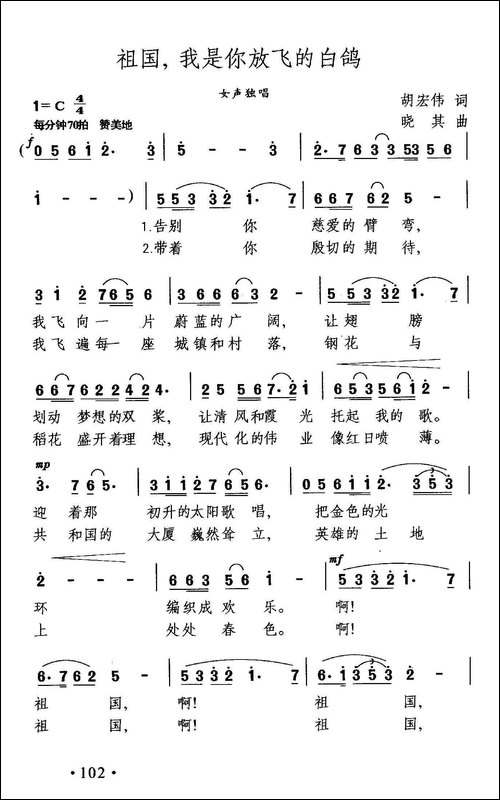 祖国，我是你放飞的白鸽
女声独唱
1=C 4/4
胡宏伟 词
每分钟70拍 赞美地
晓其 曲
f
(0 5 6 1 2· 3 | 5 - - 3 | 2·7 6 3 3 5 3 5 |
1 - - -) | 5 5 3 3 2 1· 7 | 6 6 7 6 2 - |
1.告别 你 慈爱的臂 弯，
2.带着 你 殷切的期 待，
3 1 2 7 6 5 6 | 3 6 6 6 6 3 - | 5 5 3 3 2 1· 7 |
我飞 向一 片 蔚蓝的广 阔， 让翅 膀
我飞 遍每一 座 城镇和村 落， 钢花 与
6 6 7 6 2 2 2 4 2 4· | 2 5 5 6 7·2 1 | 6 5 3 5 5 6 1 2 - |
划动 梦想的双 桨， 让清风和霞 光 托起 我的 歌。
稻花 盛开着理 想， 现代化的伟 业 像红日喷 薄。
mp
3· 7 6 5· | 3 1 1 2 7 6 3 - | 0 5 6 1 1 2· 3 5 3 |
迎 着那 初升的太阳歌 唱， 把金色的光
共 和国的 大厦 巍然耸 立， 英雄的 土 地
mf
2 - - - | 6 6 3 5 6 1 - | 5 3 3 2 1· 7 |
环 编织成 欢 乐。 啊！
上 处处 春 色。 啊！
6·7 6 2 5 - | 5 3 3 2 1· 7 | 6·1 3 5 3 2 - |
祖 国， 啊！ 祖 国，
祖 国， 啊！ 祖 国，
·102·